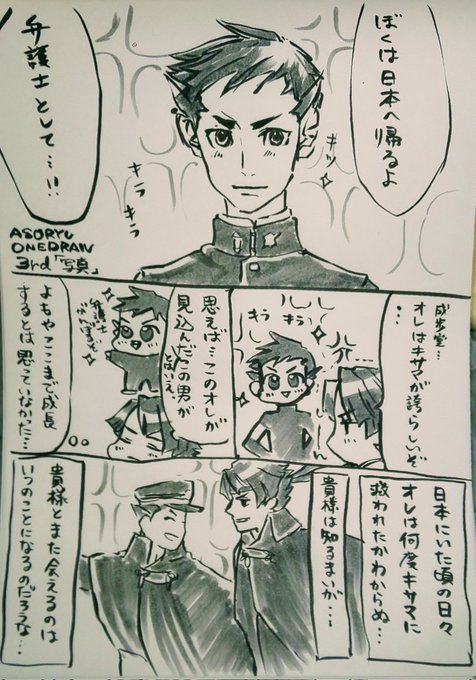 ぼくは日本へ帰るよ
弁護士として…!!
キッ
キラ
キラ
ASORYU
ONEDRAW
3rd「写真」
成歩堂…
オレはキサマが誇らしいぞ
キラ
キラ
思えば…このオレが
見込んだこの男が
とはいえ、
よもやここまで成長
するとは思っていなかった…
日本にいた頃の日々
オレは何度キサマに
救われたかわからぬ…
貴様は知るまいが…
貴様とまた会えるのは
いつのことになるのだろうな…